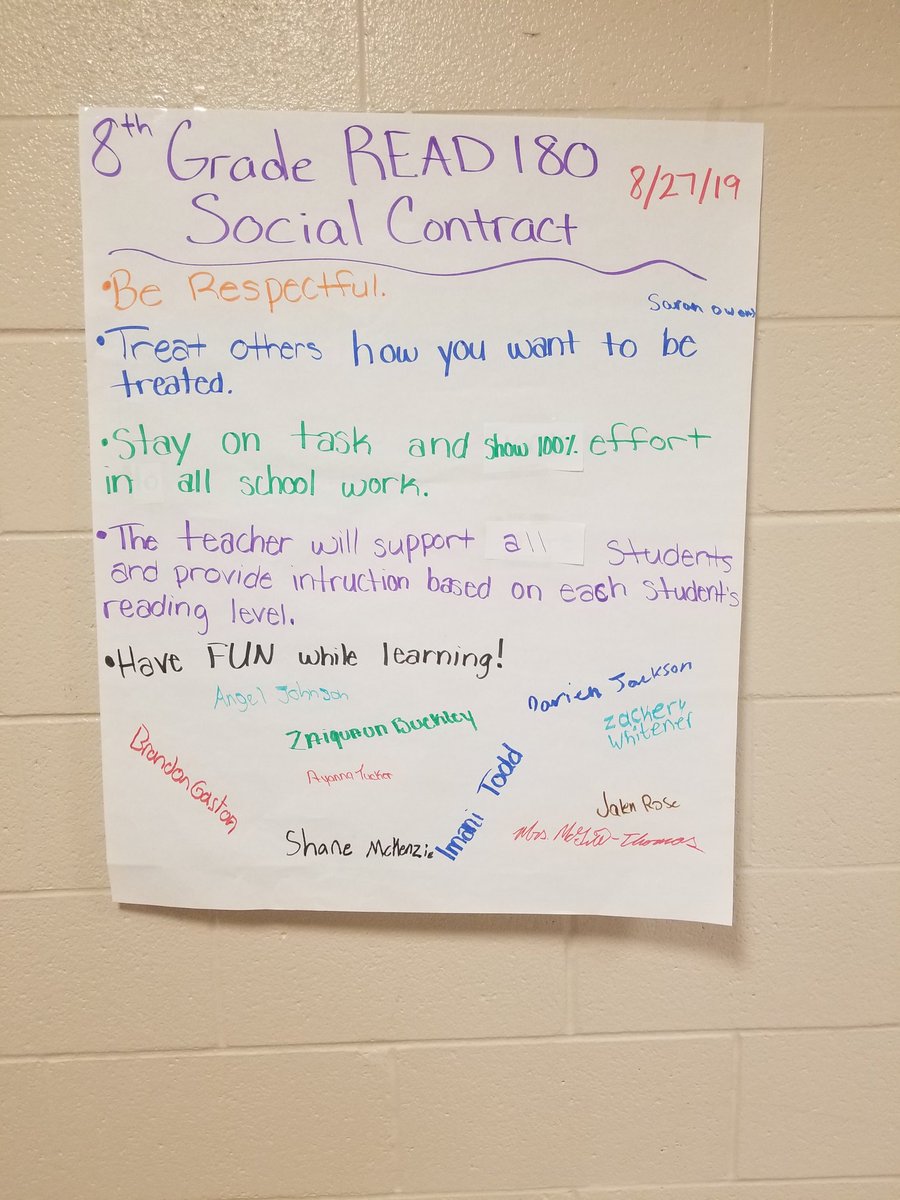 8th Grade READ 180
8/27/19
Social Contract
•Be Respectful.
Saran owens
•Treat others how you want to be
treated.
•Stay on task and show 100% effort
in all school work.
•The teacher will support all Students
and provide intruction based on each student's
reading level.
•Have FUN while learning!
Angel Johnson
Darien Jackson
Zackery
Whitener
Buckley
Brandon Gaston
Ayanna Tucker
Imani Todd
Jalen Rose
Shane McKenzie
Mrs. -Thomas